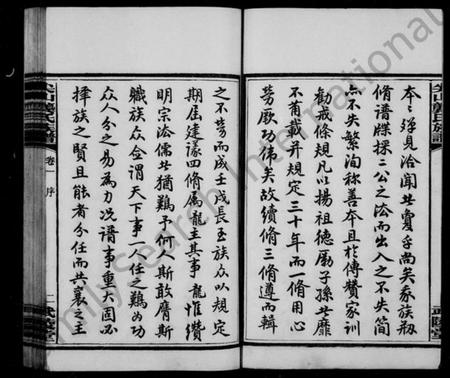 本彈見洽聞其賢乎尚矣家族刱
修譜牒採二公之法而出入之不失簡
亦不失繁洵稱善本且於傳贊家訓
勸戒條規凡以揚祖德勵子孫者靡
不甫載并規定三十年而一修用心
勞厥功偉矣故續修三修遵而輯
之不勞而成壬戌長至族眾以規定
期屆建議四修屬龍主其事龍惟纘
明宗法儒者猶難予何人斯敢膺斯
職族众僉謂天下事一人任之難为功
众人分之易为力况譜事重大固必
擇族之賢且能者分任而共襄之主
卷一 序
二
武陵堂
FamilySearch International